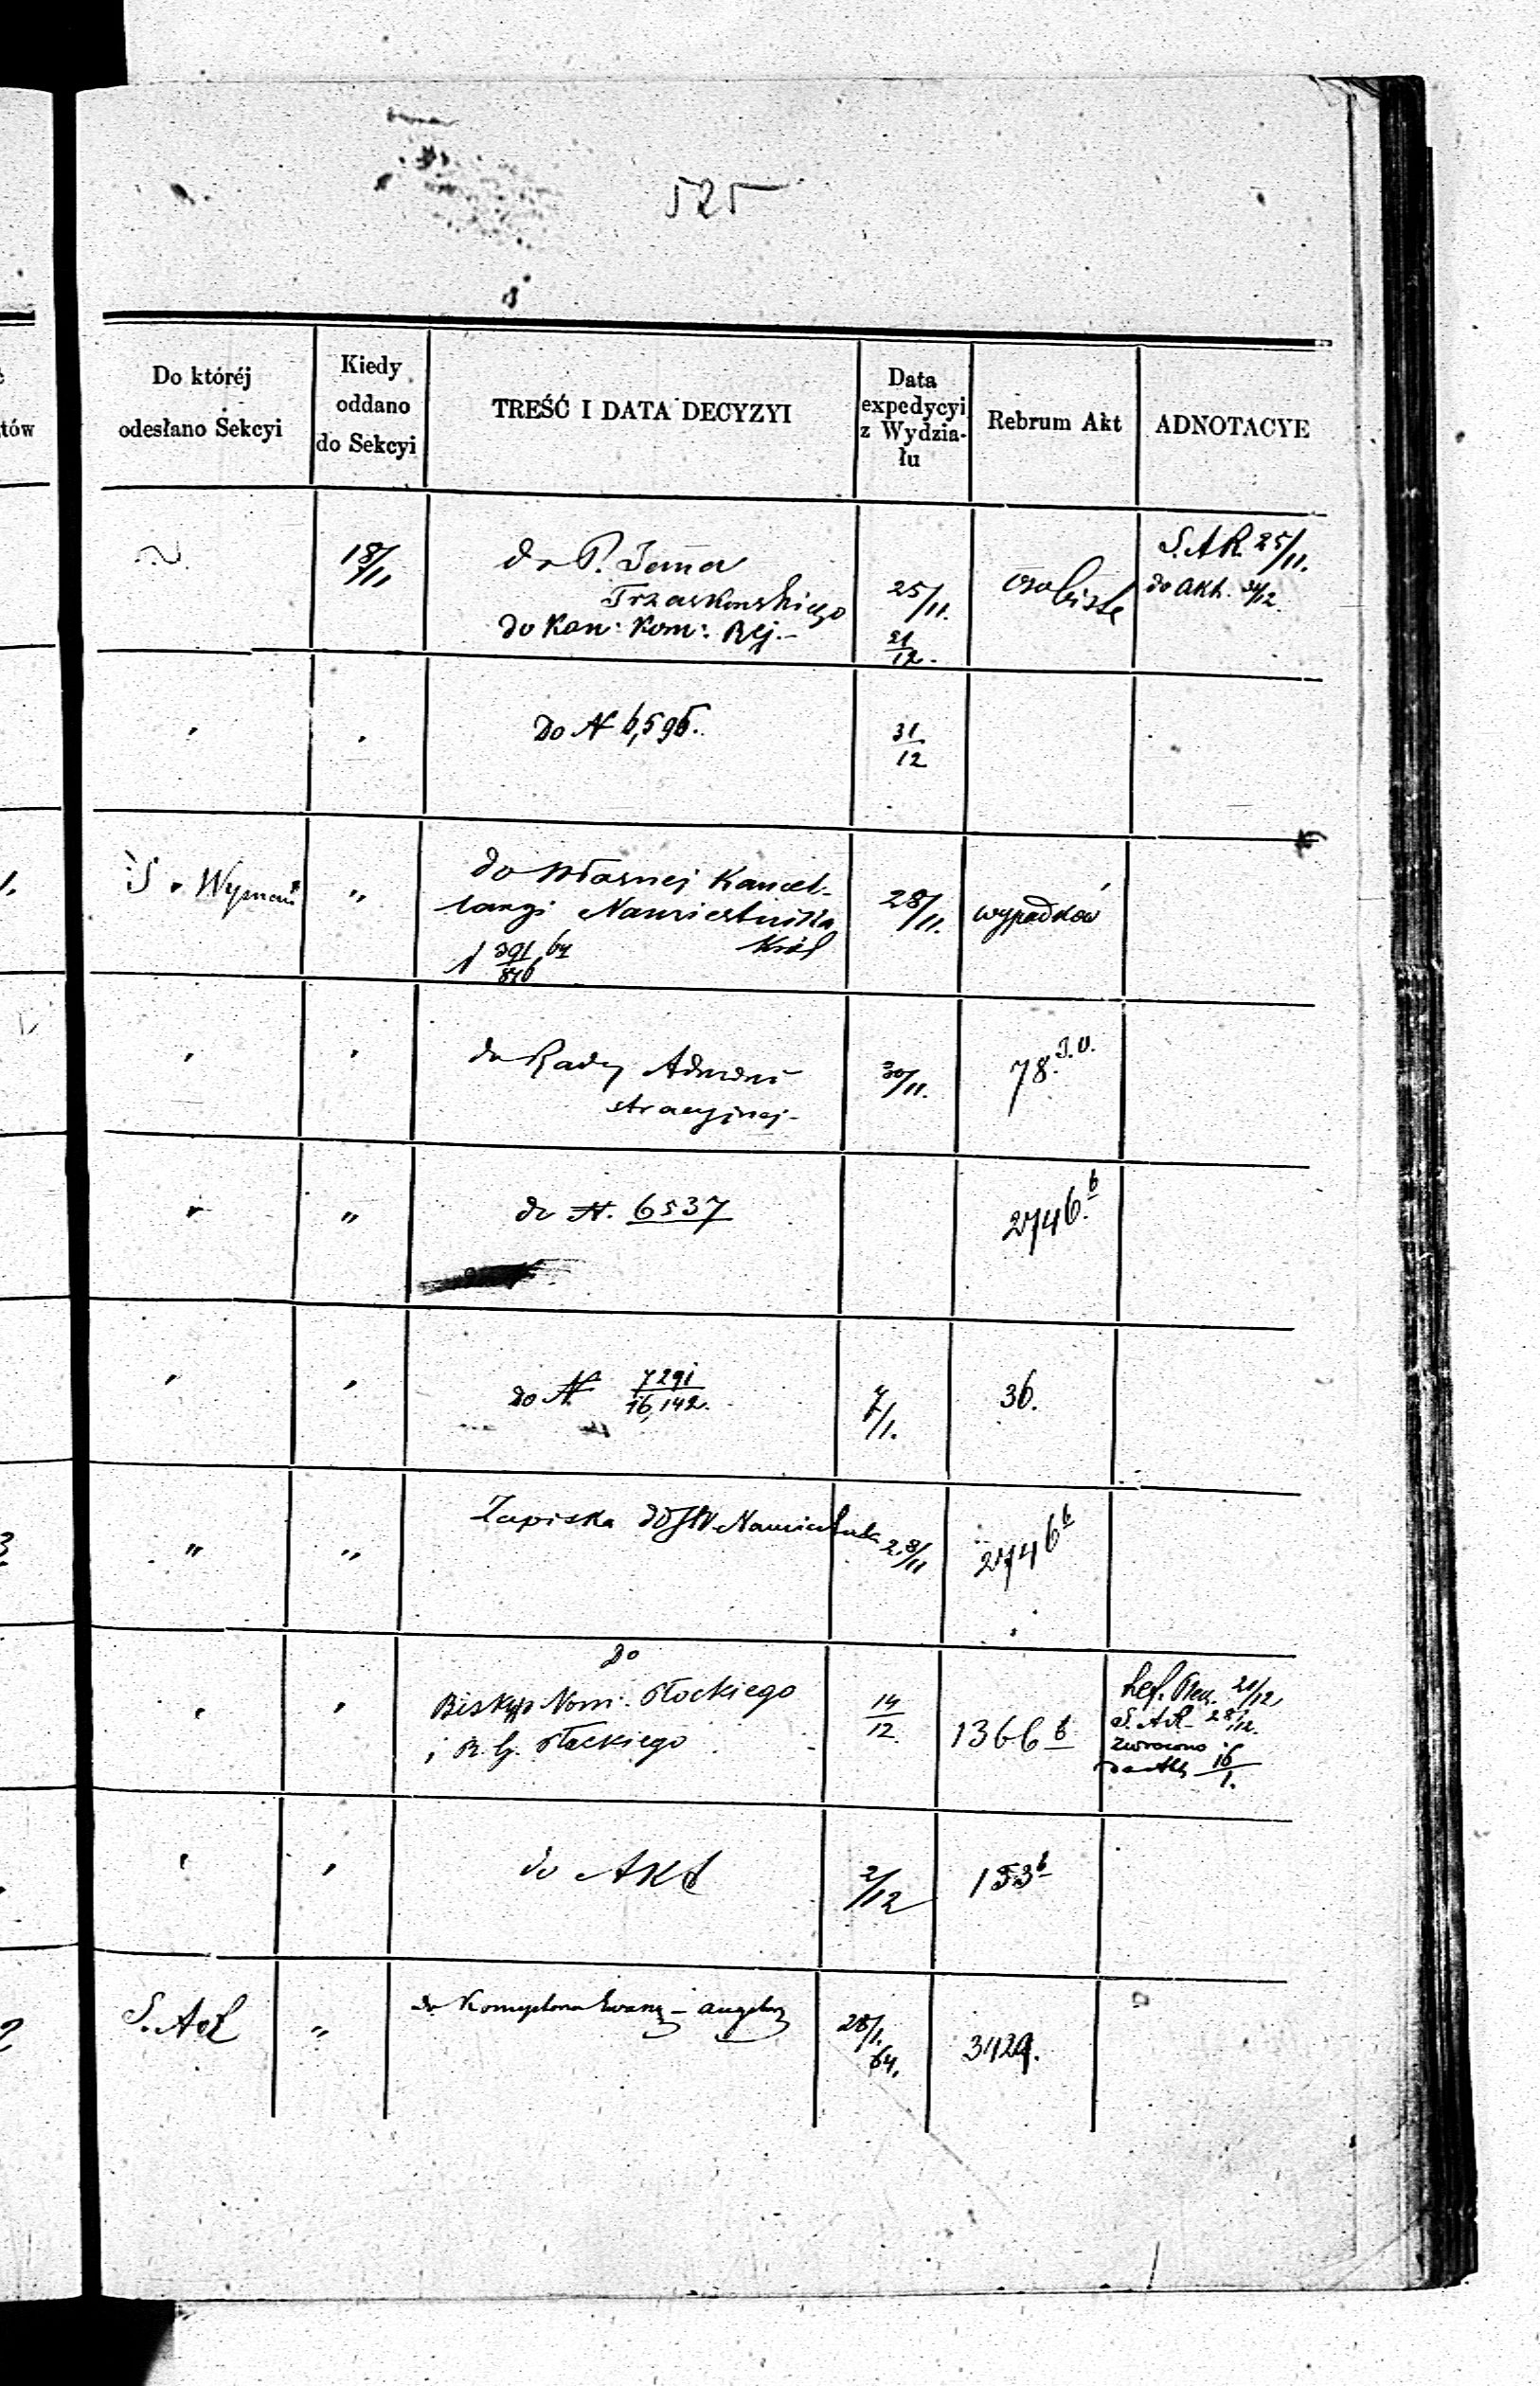 525
Do któréj
odesłano Sekcyi
Kiedy
oddano
do Sekcyi
TREŚĆ I DATA DECYZYI
Data
expedycyi
z Wydzia-
łu
Rebrum Akt
ADNOTACYE
tów
18/11
do P. Jana
Trzaskowskiego
do Kan: Kom: Rej.-
25/11.
21/12.
osobiste
S.AR. 25/11.
do Akt.
"
"
Do N 6,596.
31/12
S. Wyznań
"
do Własnej Kancel-
laryi Namiestnika
Król
N 391/876
28/11.
wypadków
"
"
do Rady Admini
stracyjnej-
30/11.
78.
"
"
do N. 6537
2746.b
"
"
do N. 7291/16,142.
7/1.
36.
"
"
Zapiska do JW Namiestnika
28/11
2746 b
"
"
do
Biskup Nom. Płockiego
i R. G. Płockiego
14/12
1366 b
21/12,
S.AR.
zwrócono
do Akt 16/1.
"
"
do Akt
2/12
153 b
"
28/1.
64.
3429.